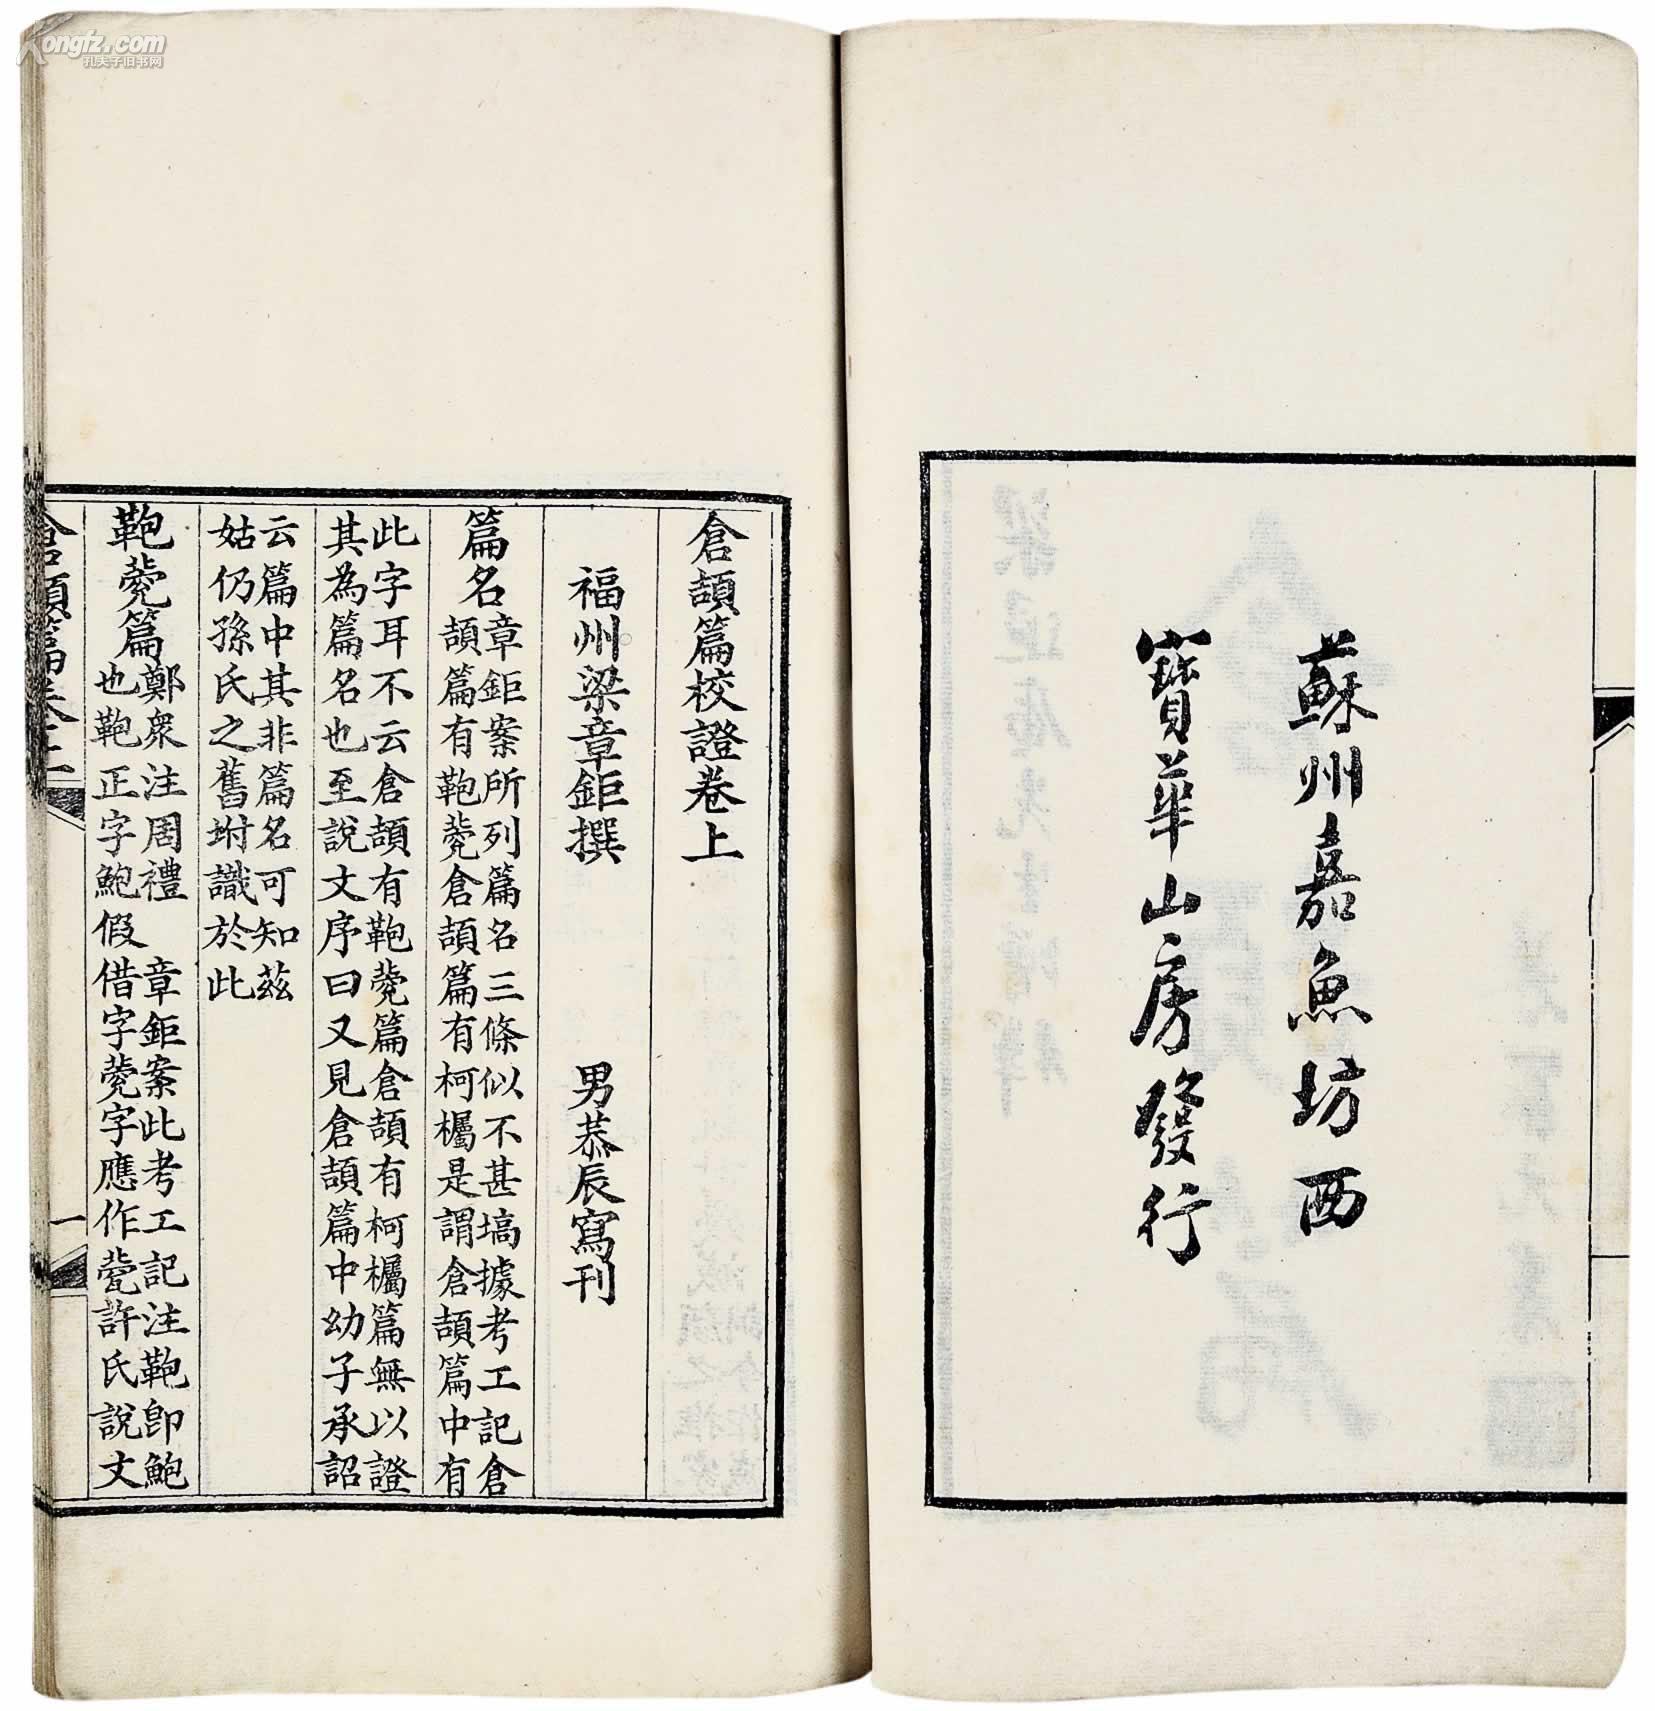 蘇州嘉魚坊西
寶華山房發行
倉頡篇校證卷上
福州梁章鉅撰 男恭辰寫刊
篇名
章鉅案所列篇名三條似不甚塙據考工記倉
頡篇有鞄㼱倉頡篇有柯欘是謂倉頡篇中有
此字耳不云倉頡有鞄㼱篇倉頡有柯欘篇無以證
其為篇名也至說文序曰又見倉頡篇中幼子承詔
云篇中其非篇名可知茲
姑仍孫氏之舊坿識於此
鞄㼱篇
鄭衆注周禮 章鉅案此考工記注鞄即鮑
也鞄正字鮑假借字㼱字應作㼱許氏說文
倉頡篇卷上
一
Kongfz.com
孔夫子旧书网